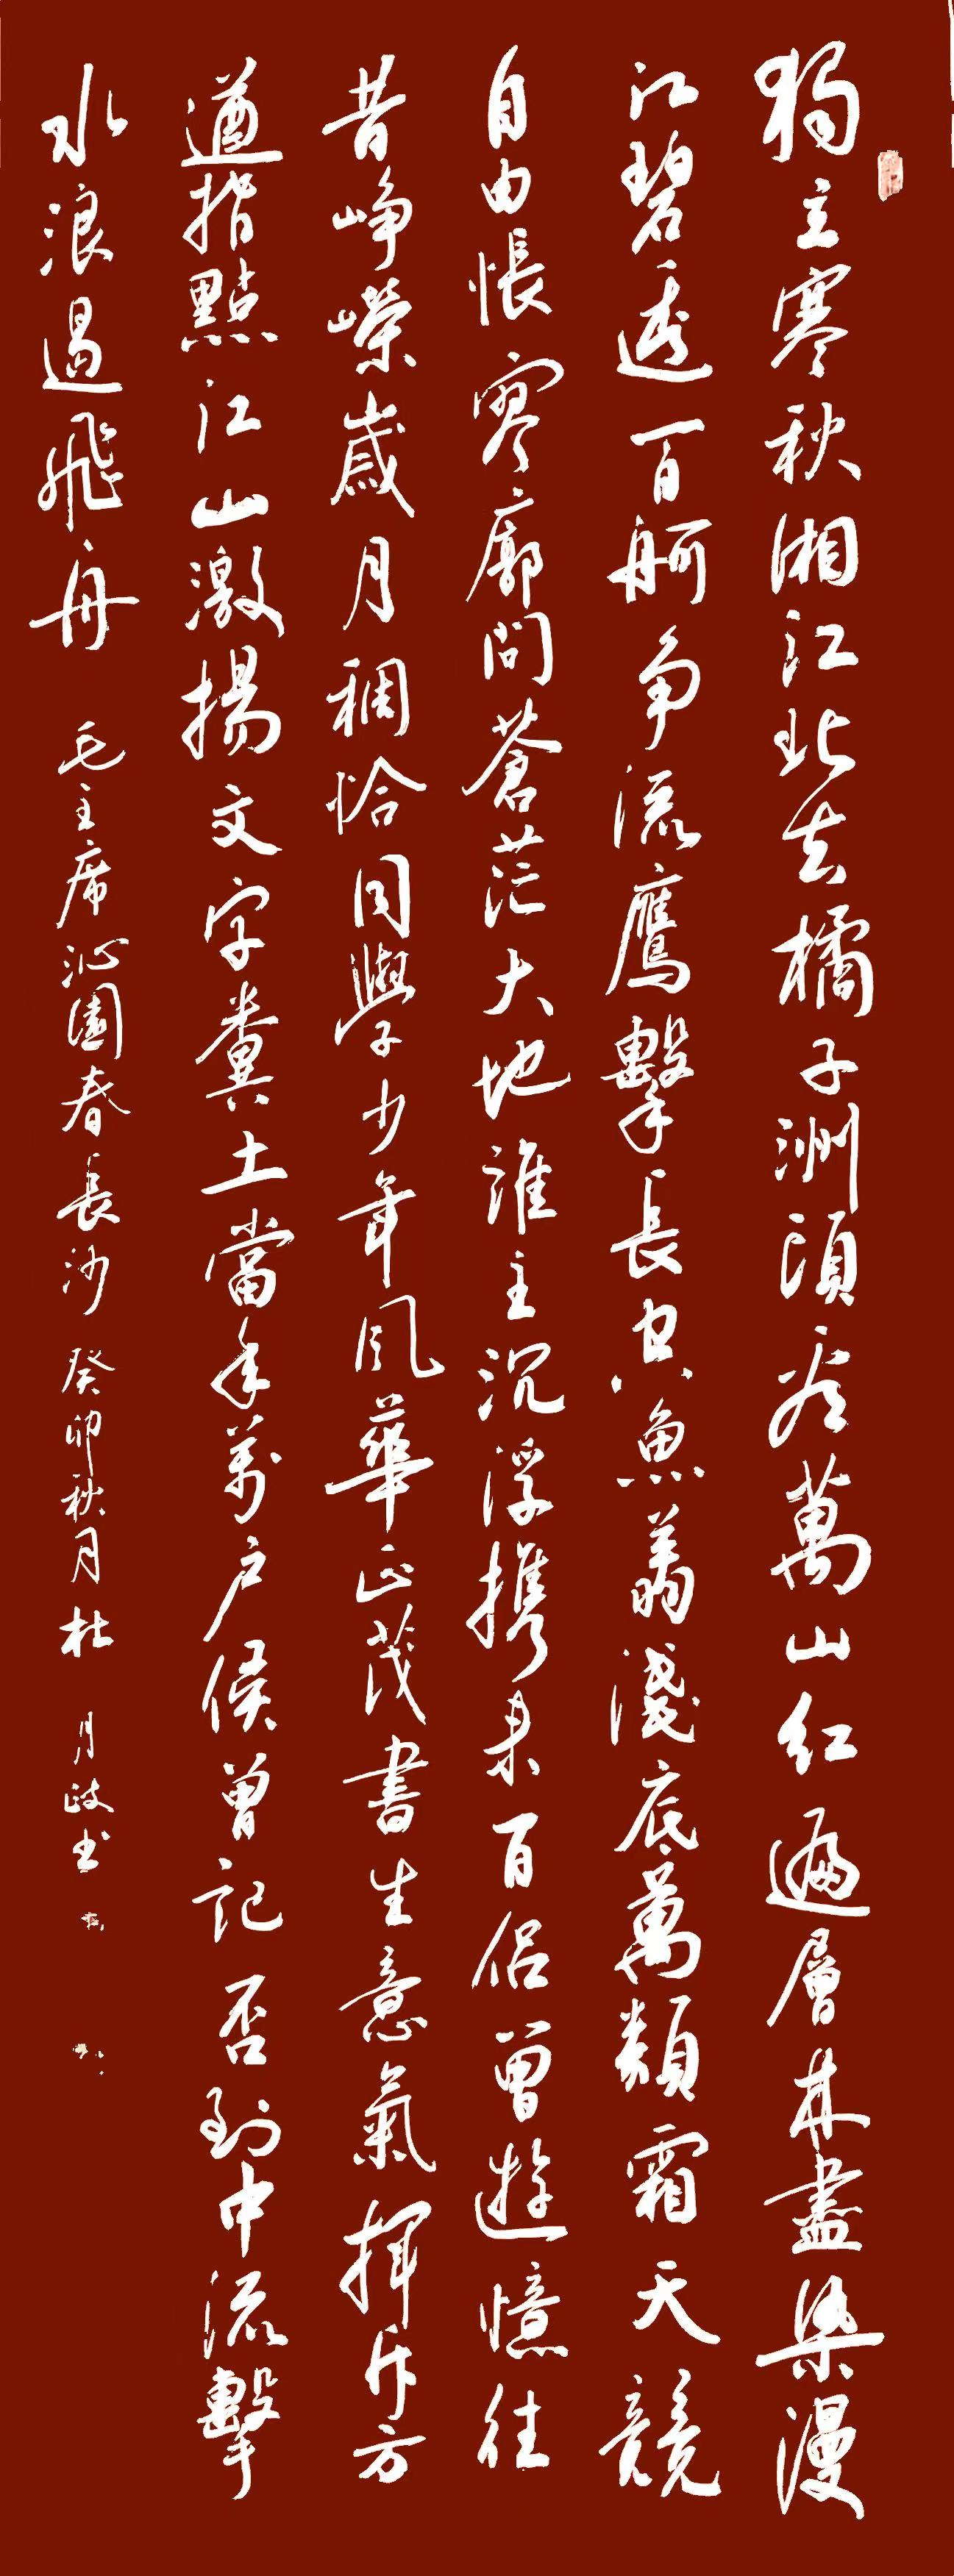 獨立寒秋湘江北去橘子洲頭看萬山红遍層林盡染漫
江碧透百舸争流鷹擊長空魚翔淺底萬類霜天競
自由悵寥廓問蒼茫大地誰主沉浮携来百侣曾遊憶往
昔峥嶸歲月稠恰同學少年风華正茂書生意氣揮斥方
遒指點江山激揚文字糞土當年萬户侯曾記否到中流擊
水浪遏飛舟 毛主席沁園春長沙 癸卯秋月杜 月政书